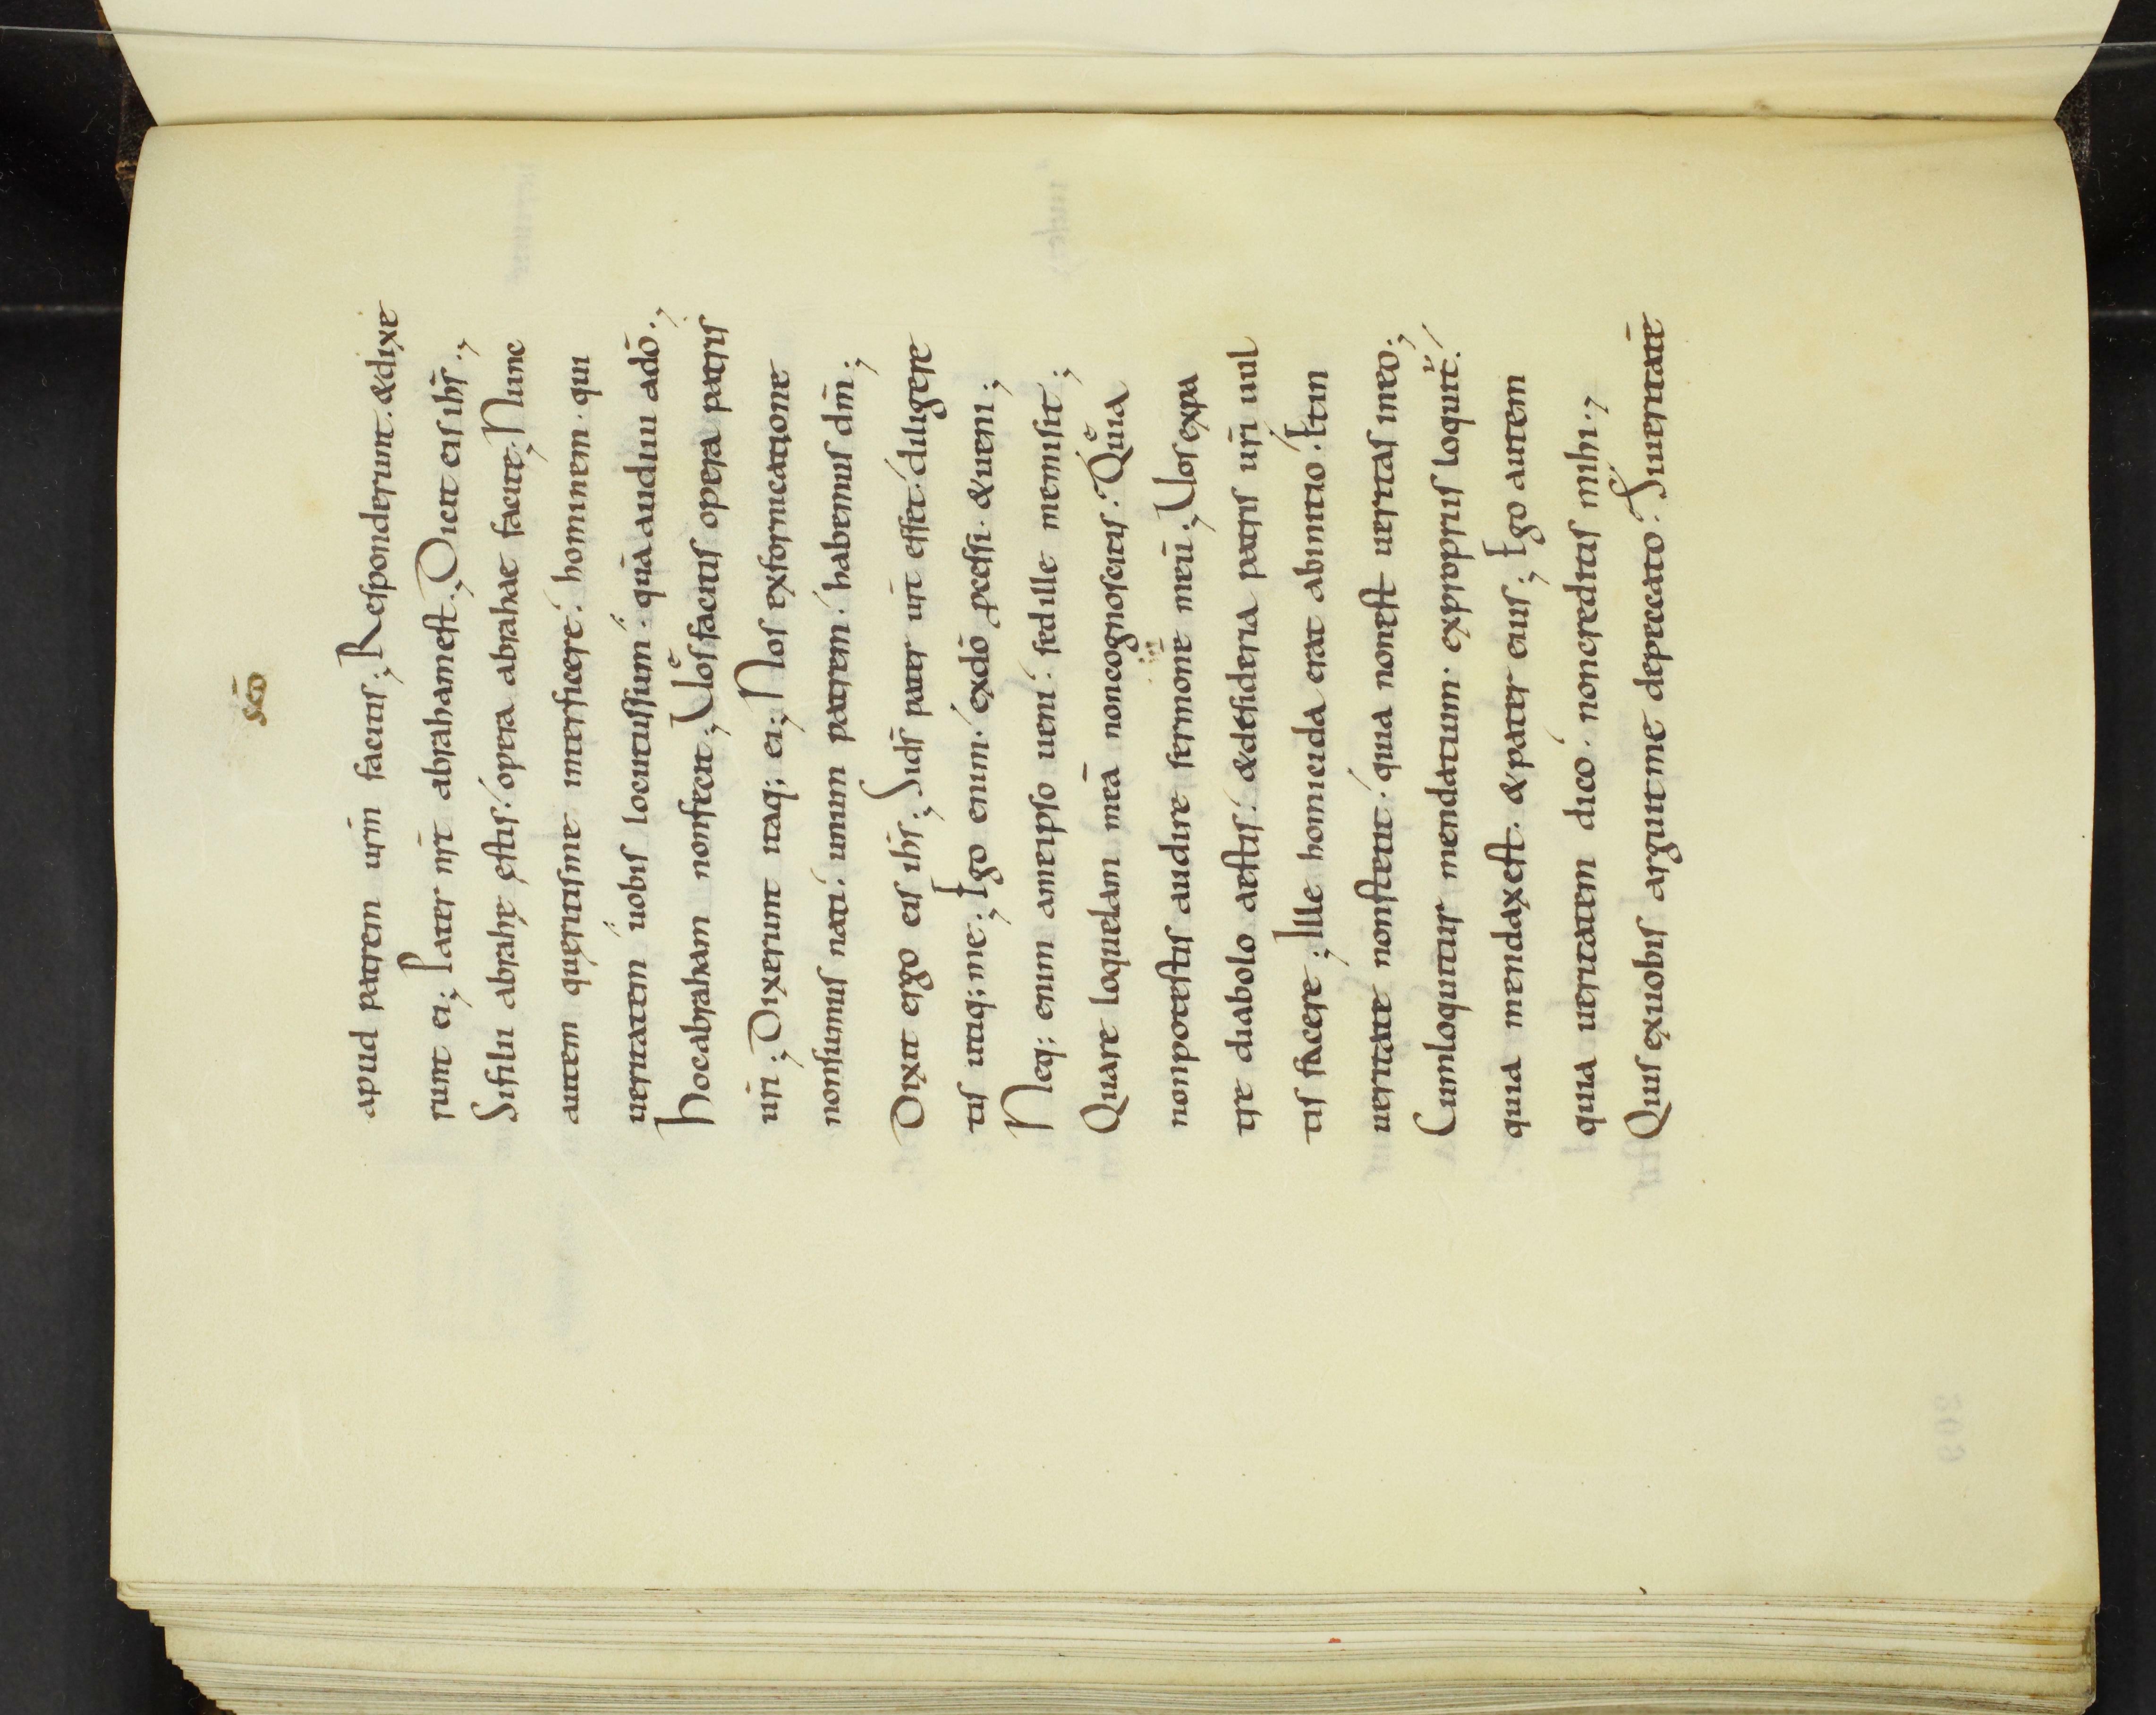 sco̅
apud patrem ur̅m facitis; Responderunt. & dixe
runt ei; Pater nr̅t abraham est; Dicit eis ih̅s;
Si filii abrahę estis. opera abrahae facite; Nunc
autem queritis me interficere. hominem. qui
ueritatem uobis locutus sum. qua̅ audiui a do̅;
Hoc abraham non fecit; Uos facitis opera patris
ur̅i; Dixerunt itaq; ei; Nos ex fornicatione
non sumus nati. unum patrem. habemus dm̅;
Dixit ergo eis ih̅s; Si ds̅ pater ur̅t esset. diligere
tis utiq; me; Ego enim. ex do̅ pcessi. & ueni;
Neq; enim a me ipso ueni. sed ille me misit;
Quare loquelam mea̅ non cognoscitis. Quia
non potestis audire sermone̅ meu̅; Uos ex pa
tre diabolo aestis. & desideria patris ur̅i uul
tis facere; Ille homicida erat ab initio. Et in
ueritate non stetit. quia non est ueritas in eo;
Cum loquitur mendatium. ex propriis loquit̅.
quia mendax est. & pater eius; Ego autem
quia ueritatem dico. non creditis mihi;
Quis ex uobis arguit me de peccato. Si ueritate̅